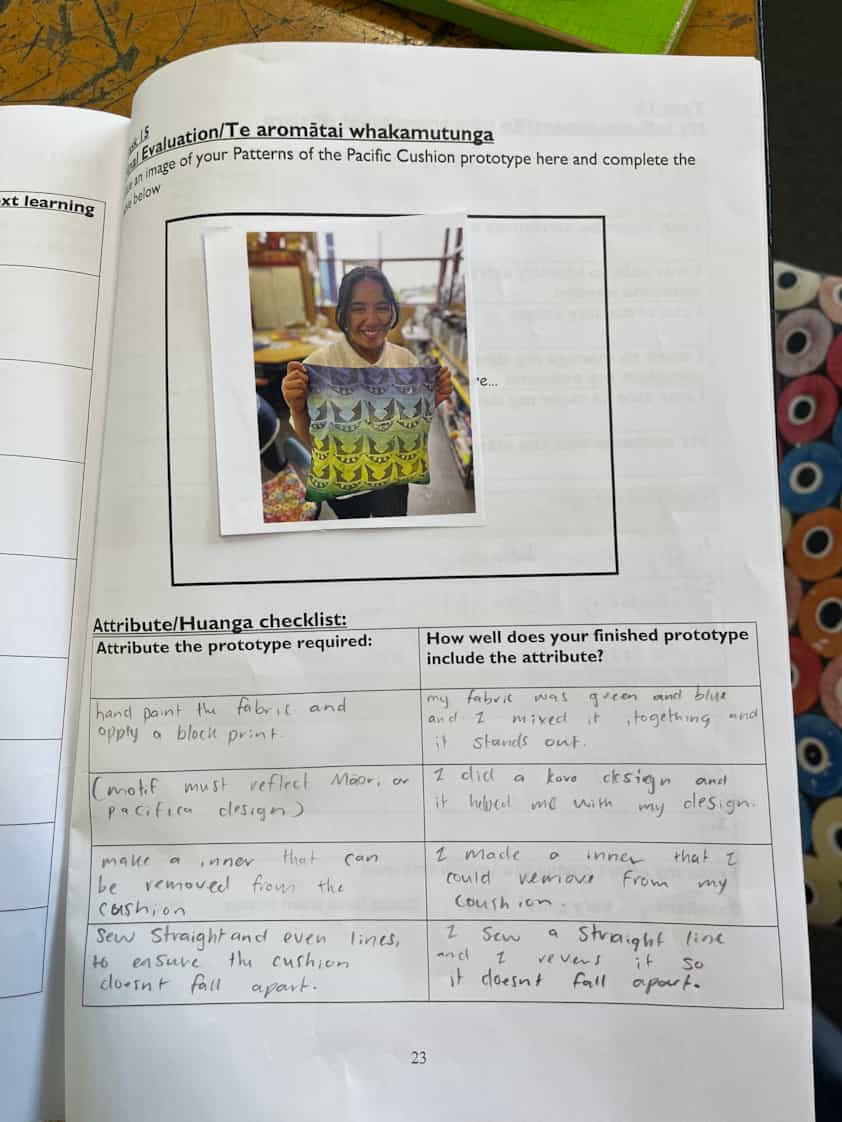 xt learning
15
Evaluation/Te aromātai whakamutunga
an image of your Patterns of the Pacific Cushion prototype here and complete the
below
e...
Attribute/Huanga checklist:
Attribute the prototype required:
How well does your finished prototype
include the attribute?
hand paint the fabric and
apply a block print.
my fabric was green and blue
and I mixed it ,togething and
it stands out.
(motif must reflect Māori or
pacifica design)
I did a koro design and
it helped me with my design.
make a inner that can
be removed from the
cushion
I made a inner that I
could remove from my
coushion.
Sew Straight and even lines,
to ensure the cushion
doesnt fall apart.
I Sew a Straight line
and I revers it so
it doesnt fall apart.
23